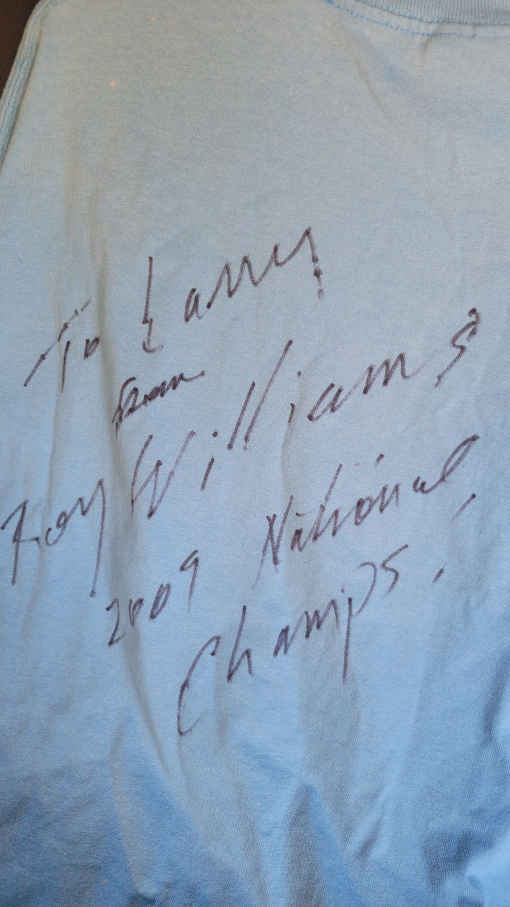 To Larry
From
Roy Williams
2009 National
Champs.